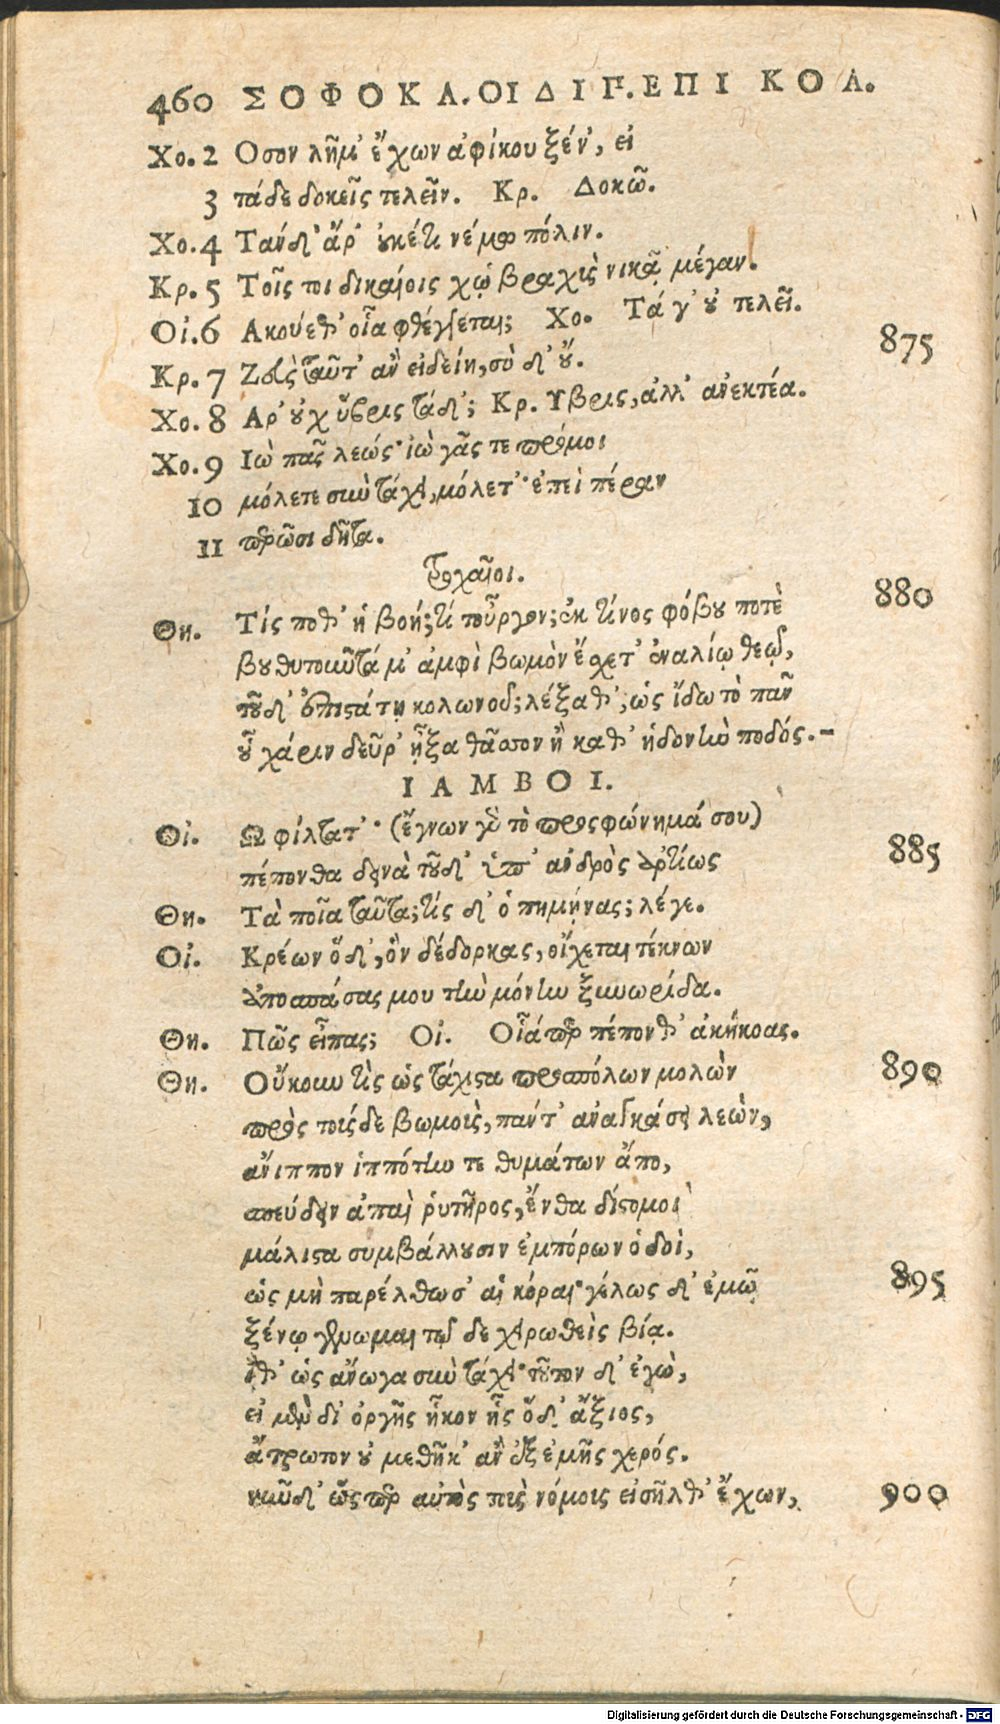 460 ΣΟΦΟΚΛ. ΟΙΔΙΠ. ΕΠΙ ΚΟΛ.
Χο. 2 Οσον λῆμ' ἔχων ἀφίκου ξέν', εἰ
3 τάδε δοκεῖς τελεῖν. Κρ. Δοκῶ.
Χο. 4 Τάνδ' ἄρ' οὐκέτι νέμω πόλιν.
Κρ. 5 Τοῖς τοι δικαίοις χᾠ βραχὺς νικᾷ μέγαν.
Οἰ. 6 Ακούεθ' οἷα φθέγγεται; Χο. Τά γ' οὐ τελεῖ. 875
Κρ. 7 Ζεὺς ταῦτ' ἂν εἰδείη, σὺ δ' οὔ.
Χο. 8 Αρ' οὐχ ὕβρις τάδ'; Κρ. Υβρις, ἀλλ' ἀνεκτέα.
Χο. 9 Ιὼ πᾶς λεώς· ἰὼ γᾶς τε πρόμοι
10 μόλετε σιωὺ τάχει, μόλετ'· ἐπεὶ πέραν
11 περῶσι δῆτα.
Τροχαῖοι.
Θη. Τίς ποθ' ἡ βοή; τί τοὖργον; ἐκ τίνος φόβου ποτὲ 880
βουθυτοῦντά μ' ἀμφὶ βωμὸν ἔσχετ' ἐναλίῳ θεῷ,
τοῦδ' ἐπιστάτῃ κολωνοῦ; λέξαθ', ὡς ἴδω τὸ πᾶν
οὗ χάριν δεῦρ' ᾖξα θᾶσσον ἢ καθ' ἡδονὴν ποδός.-
ΙΑΜΒΟΙ.
Οἰ. Ω φίλτατ'· (ἔγνων γὸ τὸ προσφώνημά σου)
πέπονθα δεινὰ τοῦδ' ὑπ' ἀνδρὸς ἀρτίως 885
Θη. Τὰ ποῖα ταῦτα; τίς δ' ὁ πημήνας; λέγε.
Οἰ. Κρέων ὅδ', ὃν δέδορκας, οἴχεται τέκνων
ἀποσπάσας μου τὴν μόνην ξυνωρίδα.
Θη. Πῶς εἶπας; Οἰ. Οἷά περ πέπονθ' ἀκήκοας.
Θη. Οὔκουν τὶς ὡς τάχιστα προσπόλων μολὼν 890
πρὸς τούσδε βωμοὺς, πάντ' ἀναγκάσει λεὼν,
ἄνιππον ἱππότην τε θυμάτων ἄπο,
σπεύδειν ἀπαὶ ῥυτῆρος, ἔνθα δίστομοι
μάλιστα συμβάλλουσιν ἐμπόρων ὁδοὶ,
ὡς μὴ παρέλθωσ' αἱ κόραι· γέλως δ' ἐμῷ 895
ξένῳ γένωμαι τῷδε χειρωθεὶς βίᾳ.
ἴθ' ὡς ἄνωγα σὺν τάχει· τοῦτον δ' ἐγὼ,
εἰ μὲν δι' ὀργῆς ἧκον ἧς ὅδ' ἄξιος,
ἄτρωτον οὐ μεθῆκ' ἂν ἐξ ἐμῆς χερός.
νῦν δ' ὥσπερ αὐτὸς τοὺς νόμους εἰσῆλθ' ἔχων, 900
Digitalisierung gefördert durch die Deutsche Forschungsgemeinschaft - DFG